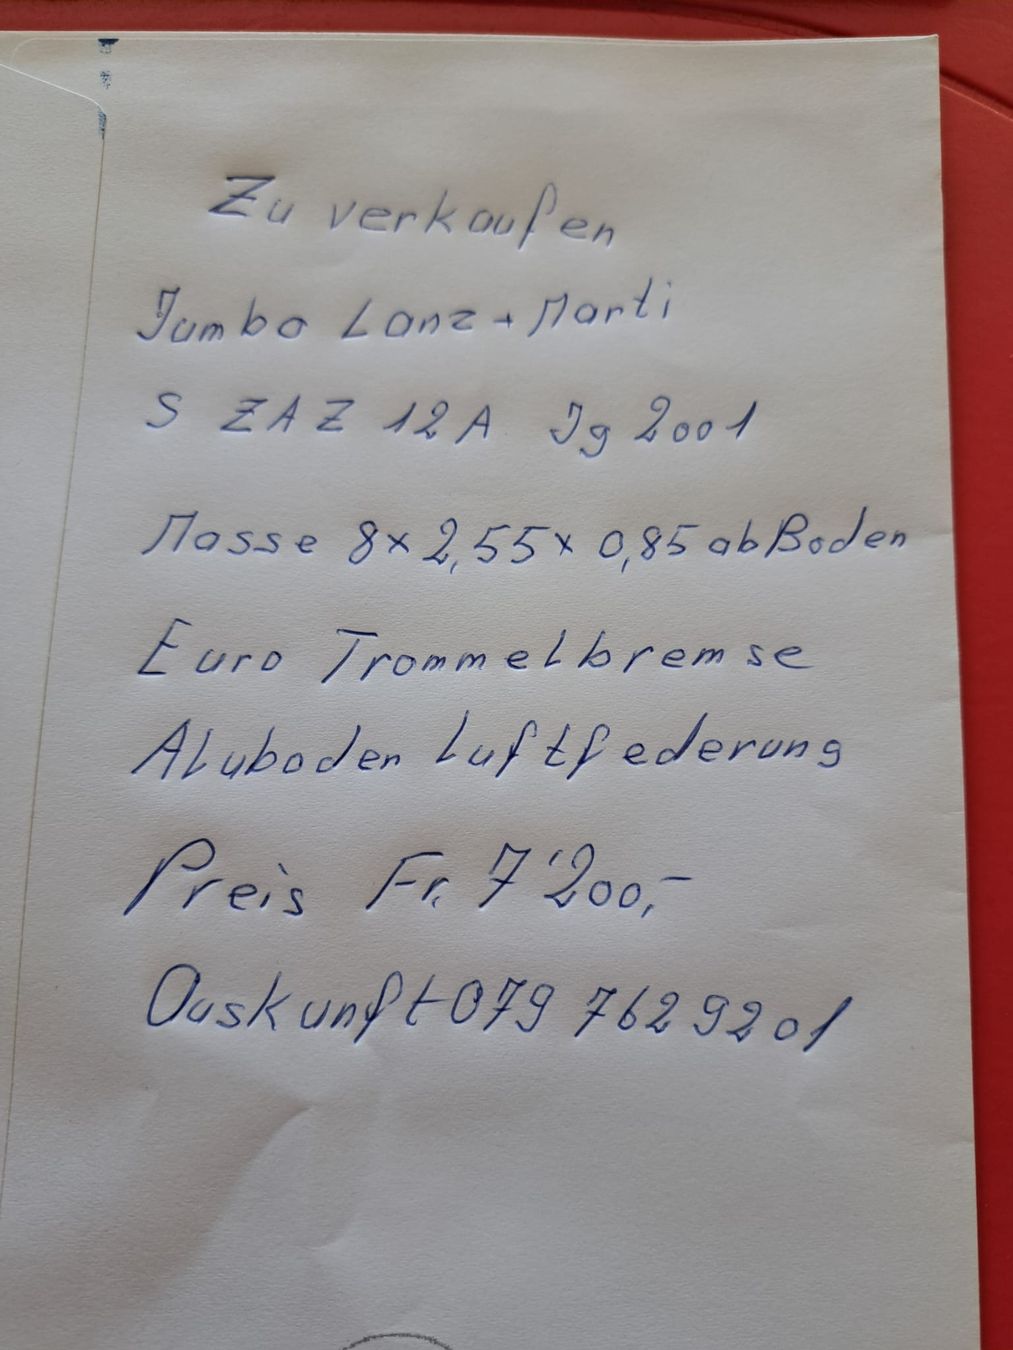 Zu verkaufen
Jumbo Lanz + Marti
S ZAZ 12A Jg 2001
Masse 8x2,55x 0,85 ab Boden
Euro Trommelbremse
Aluboden Luftfederung
Preis Fr. 7'200,-
Auskunft 079 762 92 01